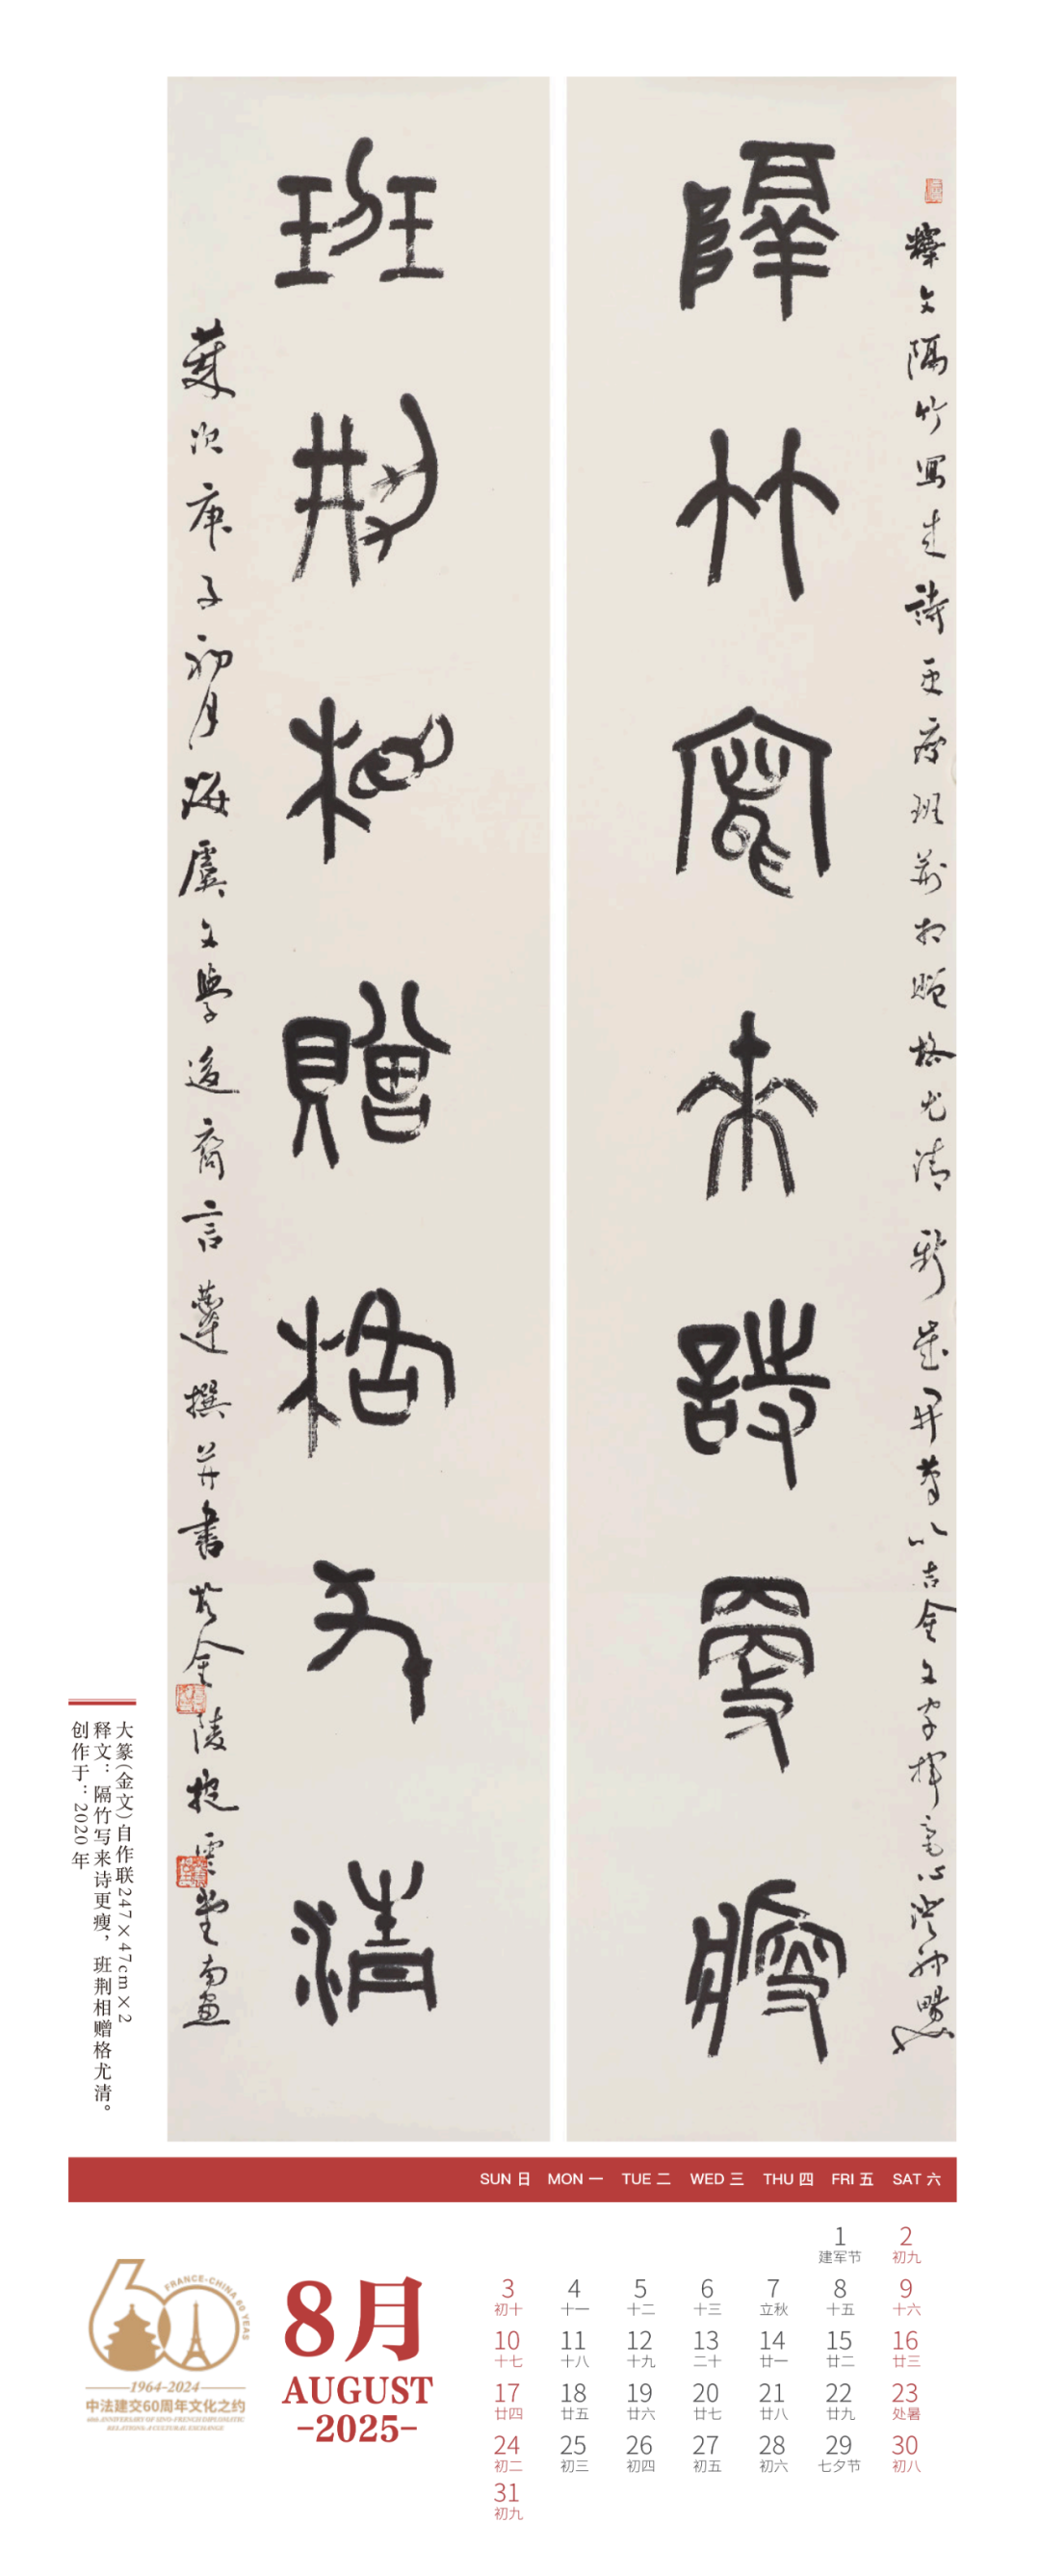 隔竹写来诗更瘦
班荆相赠格尤清
釋文隔竹寫來詩更瘦班荆相贈格尤清
以吉金文字揮毫心
歲次庚子初月海虞文學後裔言
撰并書於金陵抱雲堂南窗
大篆(金文)自作联247×47cm×2
释文：隔竹写来诗更瘦，班荆相赠格尤清。
创作于：2020年
SUN 日 MON 一 TUE 二 WED 三 THU 四 FRI 五 SAT 六
FRANCE-CHINA 60 YEAS
60
—1964-2024—
中法建交60周年文化之约
60th ANNIVERSARY OF SINO-FRENCH DIPLOMATIC
RELATIONS-A CULTURAL EXCHANGE
8月
AUGUST
-2025-
1 2
建军节 初九
3 4 5 6 7 8 9
初十 十一 十二 十三 立秋 十五 十六
10 11 12 13 14 15 16
十七 十八 十九 二十 廿一 廿二 廿三
17 18 19 20 21 22 23
廿四 廿五 廿六 廿七 廿八 廿九 处暑
24 25 26 27 28 29 30
初二 初三 初四 初五 初六 七夕节 初八
31
初九